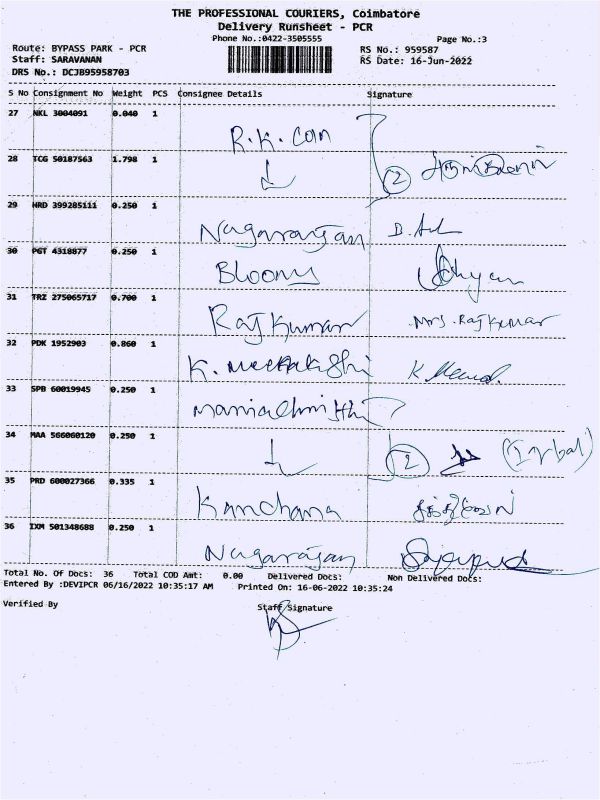 THE PROFESSIONAL COURIERS, Coimbatore
Delivery Runsheet - PCR
Phone No.:0422-3505555
Page No.:3
Route: BYPASS PARK - PCR
RS No.: 959587
Staff: SARAVANAN
RS Date: 16-Jun-2022
DRS No.: DCJB95958703
S No Consignment No Weight PCS Consignee Details Signature
27 NKL 3004091 0.040 1
R.K. Coin
28 TCG 50187563 1.798 1
2
29 HRD 399285111 0.250 1
Nagararajan
30 PGT 4318877 0.250 1
Blooms
31 TRZ 275065717 0.700 1
Raj Kumar Mrs. Raj Kumar
32 PDK 1952903 0.860 1
K. Meenakshi
33 SPB 60019945 0.250 1
34 MAA 566060120 0.250 1
2
35 PRD 600027366 0.335 1
Kanchana
36 IXM 501348688 0.250 1
Nagarajan
Total No. Of Docs: 36 Total COD Amt: 0.00 Delivered Docs: Non Delivered Docs:
Entered By :DEVIPCR 06/16/2022 10:35:17 AM Printed On: 16-06-2022 10:35:24
Verified By
Staff Signature